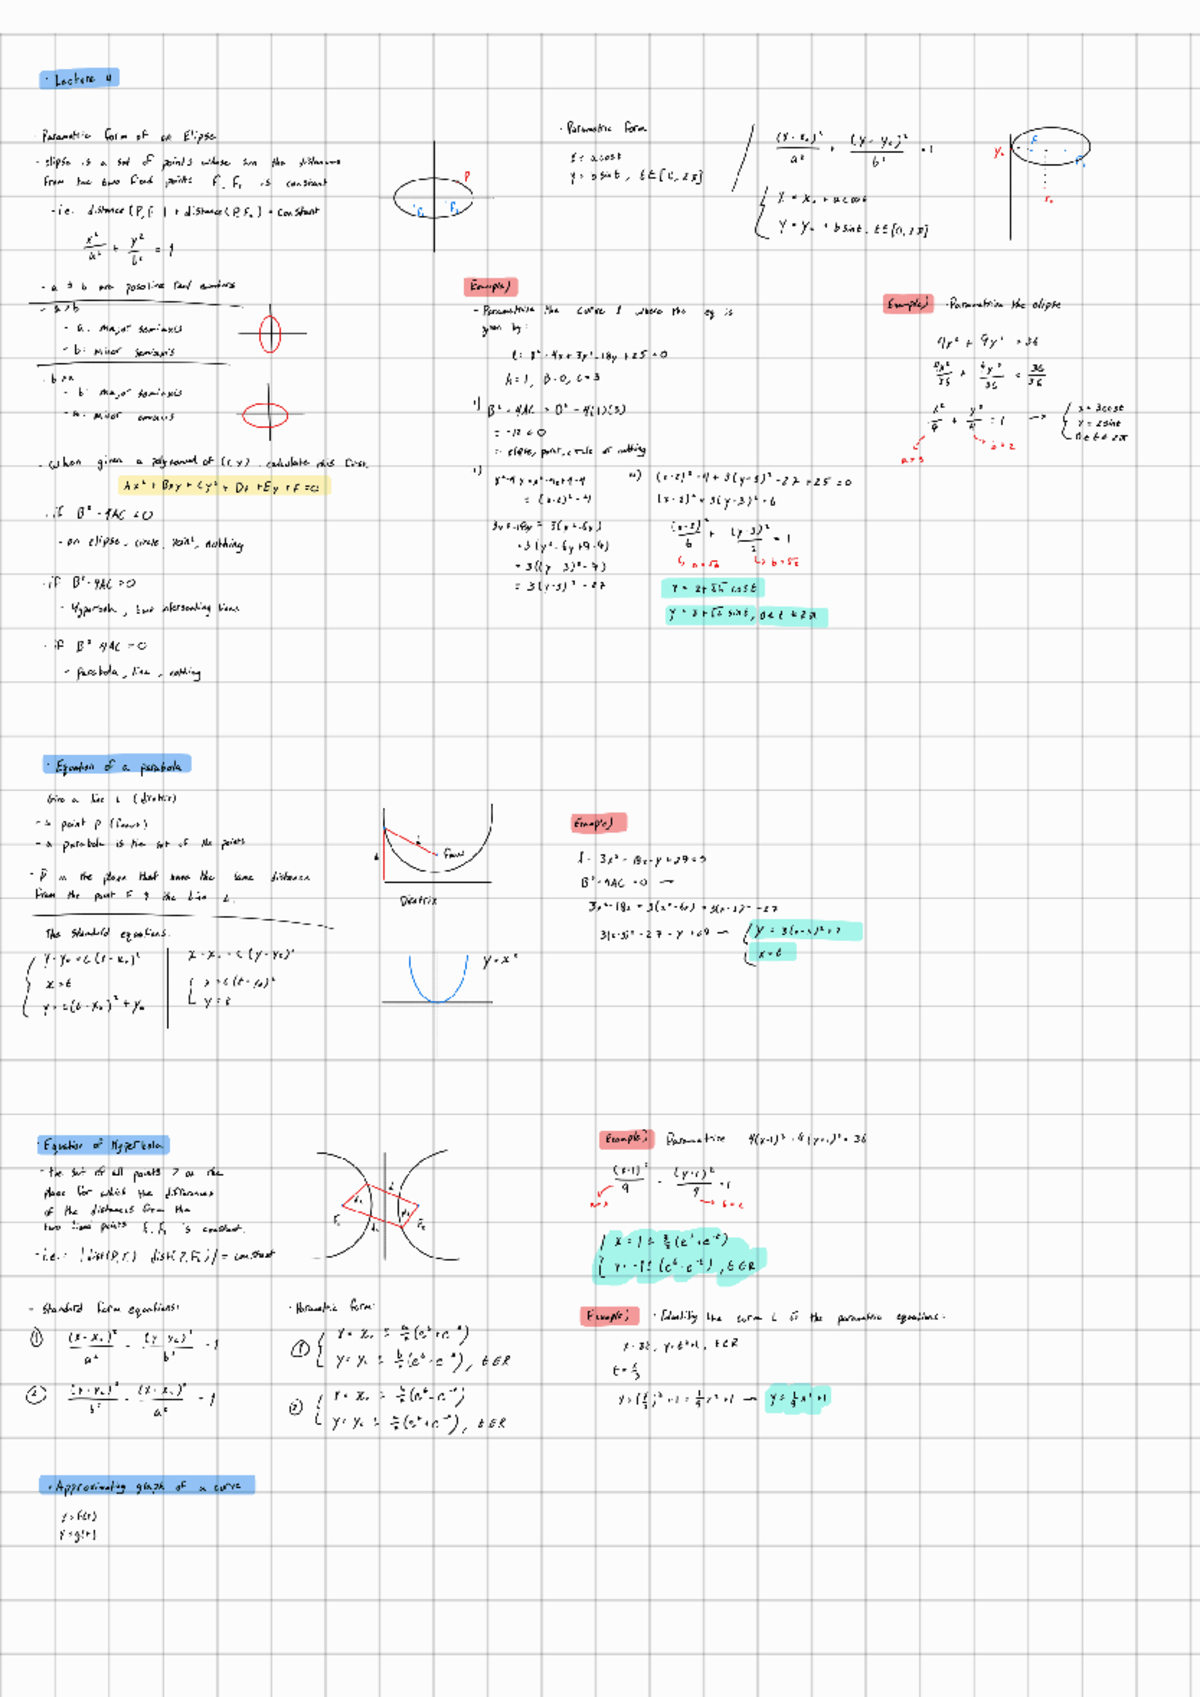 · Lecture 4
· Parametric form of an Elipse
- elipse is a set of points whose sum the distances
from the two fixed points F₁ F₂ is constant
- i.e. distance (P, F₁) + distance (P, F₂) = constant
x²/a² + y²/b² = 1
- a & b are positive real numbers
- a > b
- a: major semiaxis
- b: minor semiaxis
- b > a
- b: major semiaxis
- a: minor semiaxis
- when given a polynomial of (x, y) calculate this first
Ax² + Bxy + Cy² + Dx + Ey + F = 0
· if B² - 4AC < 0
- an elipse, circle, point, nothing
· if B² - 4AC > 0
- Hyperbola, two intersecting lines
· if B² - 4AC = 0
- parabola, line, nothing
P
F₁
F₂
· Parametric form
x = a cost
y = b sint, t ∈ [0, 2π]
(x - x₀)²/a² + (y - y₀)²/b² = 1
x = x₀ + a cost
y = y₀ + b sint, t ∈ [0, 2π]
y₀
x₀
Example)
- Parametrise the curve l where the eq is
given by:
A = 1, B = 0, C = 3
i) B² - 4AC = 0² - 4(1)(3)
= -12 < 0
∴ elipse, point, circle or nothing
= (x-2)² - 4
= 3(y² - 6y + 9 - 9)
= 3((y - 3)² - 9)
= 3(y-3)² - 27
(x-2)² - 4 + 3(y-3)² - 27 + 25 = 0
(x-2)² + 3(y-3)² = 6
(x-2)²/6 + (y-3)²/2 = 1
↳ a = √6
↳ b = √2
x = 2 + √6 cost
y = 3 + √2 sint, 0 ≤ t ≤ 2π
Example) · Parametrise the elipse
4x² + 9y² = 36
4x²/36 + 9y²/36 = 36/36
x²/9 + y²/4 = 1 →
x = 3cost
y = 2sint
0 ≤ t ≤ 2π
a = 3
b = 2
· Equation of a parabola
Give a line L (directrix)
- a point P (focus)
- a parabola is the set of the points
- P in the plane that have the same distance
from the point F & the line L.
The standard equations.
y - y₀ = c(x - x₀)²
x = t
y = c(t - x₀)² + y₀
x - x₀ = c(y - y₀)²
y = t
Focus
Directrix
y = x²
Example)
B² - 4AC = 0 →
3x² - 18x = 3(x² - 6x) = 3(x-3)² - 27
x = t
· Equation of Hyperbola
- the set of all points P on the
plane for which the differences
of the distances from the
two fixed points F₁ F₂ is constant.
- i.e. · |dist(P, F₁) - dist(P, F₂)| = constant
F₁
F₂
- Standard form equations:
① (x - x₀)²/a² - (y - y₀)²/b² = 1
② (y - y₀)²/b² - (x - x₀)²/a² = 1
· Parametric form:
① x = x₀ ± a/2 (eᵗ + e⁻ᵗ)
y = y₀ ± b/2 (eᵗ - e⁻ᵗ), t ∈ R
② x = x₀ ± a/2 (eᵗ - e⁻ᵗ)
y = y₀ ± b/2 (eᵗ + e⁻ᵗ), t ∈ R
Example) Parametrise
a = 3
b = 2
x = 1 ± 3/2 (eᵗ + e⁻ᵗ)
, t ∈ R
Example) · Identify the curve L is the parametric equations.
x = 3t, y = t² + 1, t ∈ R
t = x/3
y = (x/3)² + 1 = 1/9 x² + 1 → y = 1/9 x² + 1
· Approximating graph of a curve
x = f(t)
y = g(t)